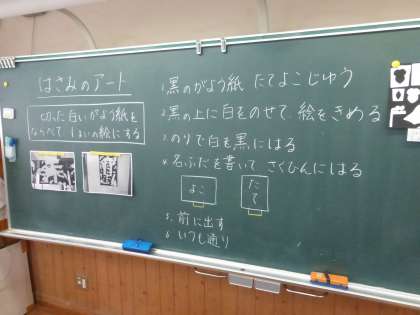 はさみのアート
切った白いがよう紙を
ならべて 1まいの絵にする
1.黒のがよう紙 たてよこじゆう
2.黒の上に白をのせて、絵をきめる
3.のりで白を黒にはる
4.名ふだを書いて さくひんにはる
よこ
たて
5.前に出す
6.いつも通り